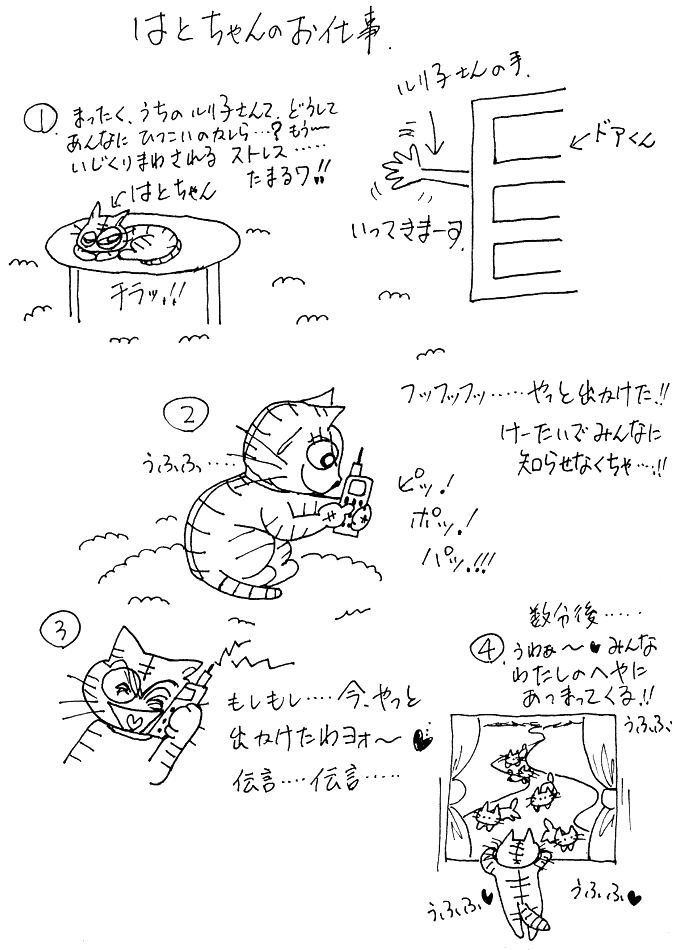 はとちゃんのお仕事.
①
まったく、うちのルリ子さんて、どうして
あんなに ひつこいのカしら…?もう〜
いじくりまわされる ストレス……
たまるワ!!
はとちゃん
チラッ!!
ルリ子さんの手.
ドアくん
いってきまーす.
②
うふふふ‥‥
フッフッフッ……やっと出かけた!!
けーたいでみんなに
知らせなくちゃ…!!
ピッ!
ポッ!
パッ!!!
③
もしもし‥‥今、やっと
出かけたわヨォ〜♥
伝言‥‥伝言‥‥‥
数分後‥‥‥
④
うわぁ〜♥みんな
わたしのへやに
あつまってくる!!
うふふ
うふふ♥
うふふ♥